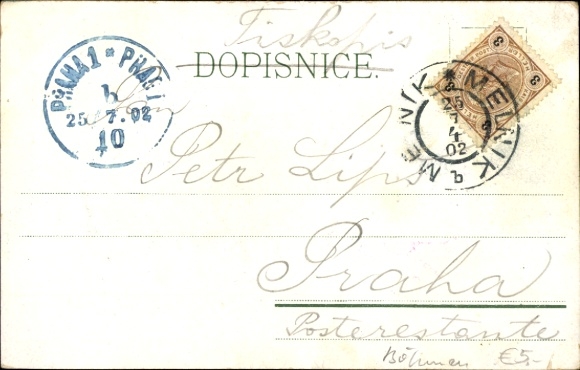 Tiskopis
DOPISNICE.
PRAHA 1 * PRAG 1
b
25 7.02
10
3 3 3 3
* MĚLNÍK * MELNIK b
25
7
4
02
Pan
Petr Lips
Praha
Posterestante
Böhmen €5,-